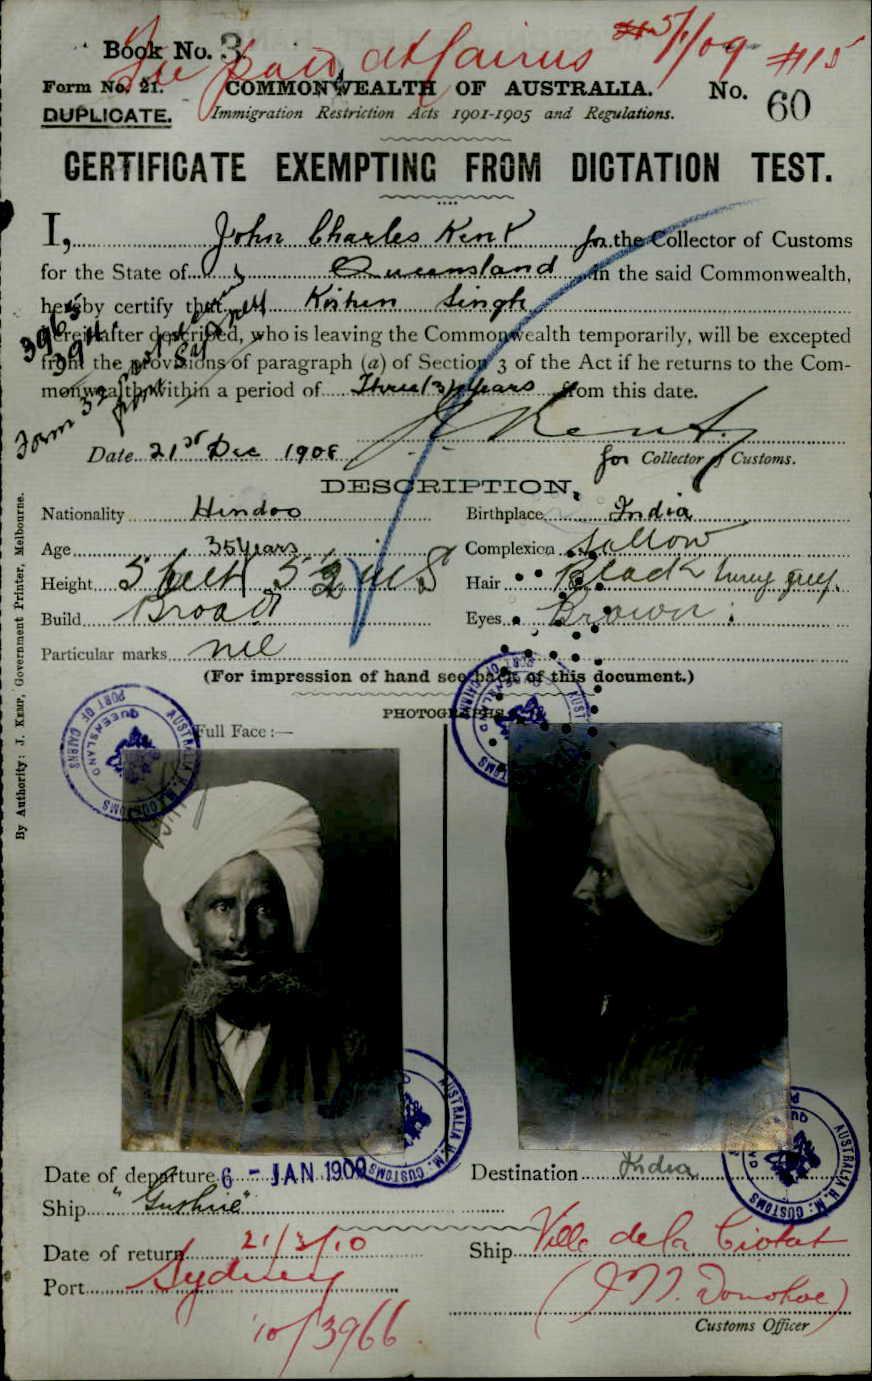 Book No. 3
Fee paid at Cairns 5/1/09 #15
Form No. 21. COMMONWEALTH OF AUSTRALIA. No. 60
DUPLICATE. Immigration Restriction Acts 1901-1905 and Regulations.
CERTIFICATE EXEMPTING FROM DICTATION TEST.
I, John Charles Kent for the Collector of Customs
for the State of Queensland in the said Commonwealth,
hereby certify that Kishen Singh
hereinafter described, who is leaving the Commonwealth temporarily, will be excepted
from the provisions of paragraph (a) of Section 3 of the Act if he returns to the Com-
monwealth within a period of Three (3) years from this date.
Form 32
J. Kent.
Date 21st Dec 1908 for Collector of Customs.
DESCRIPTION.
Nationality Hindoo Birthplace India
Age 35 Years Complexion Sallow
Height 5 feet 5½ ins Hair Black turning grey.
Build Broad Eyes Brown
Particular marks nil
(For impression of hand see back of this document.)
PHOTOGRAPHS.
Full Face :—
AUSTRALIA H.M. CUSTOMS
PORT OF CAIRNS
QUEENSLAND
AUSTRALIA H.M. CUSTOMS
AUSTRALIA H.M. CUSTOMS
By Authority: J. KEMP, Government Printer, Melbourne.
Date of departure 6 - JAN 1909 Destination India
Ship "Guthrie"
Date of return 21/3/10 Ship Ville de la Ciotat
Port Sydney (J.T.T. Donohoe)
Customs Officer
10/3966